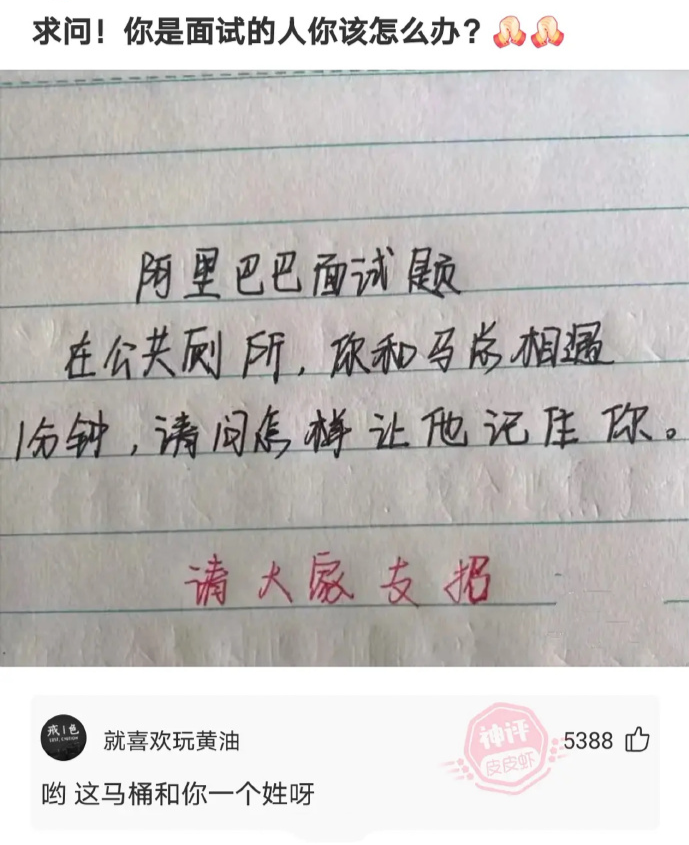 求问！你是面试的人你该怎么办？
阿里巴巴面试题
在公共厕所，你和马总相遇
1分钟，请问怎样让他记住你。
请大家支招
戒色
就喜欢玩黄油
神评
皮皮虾
5388
哟 这马桶和你一个姓呀